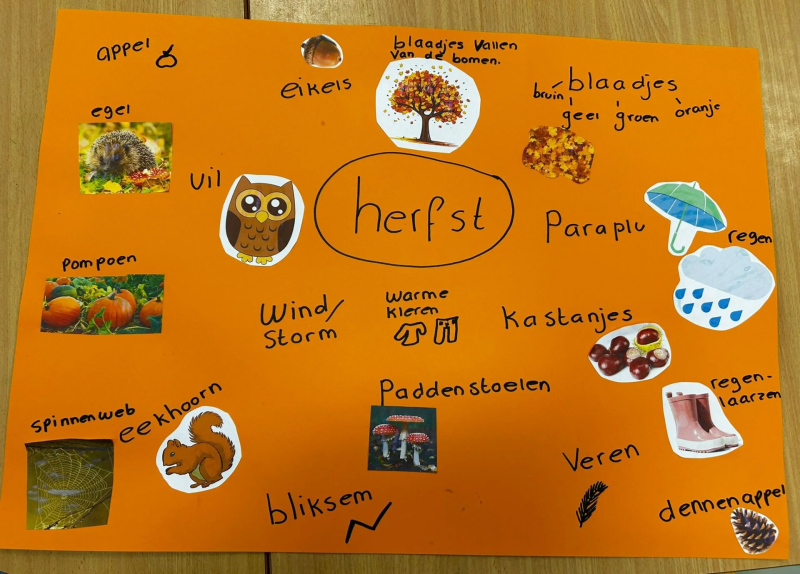 appel
eikels
blaadjes vallen
van de bomen.
blaadjes
bruin geel groen oranje
egel
uil
herfst
Paraplu
regen
Pompoen
Wind/
Storm
Warme
kleren
kastanjes
Paddenstoelen
regen-
laarzen
spinnenweb
eekhoorn
bliksem
Veren
dennenappel